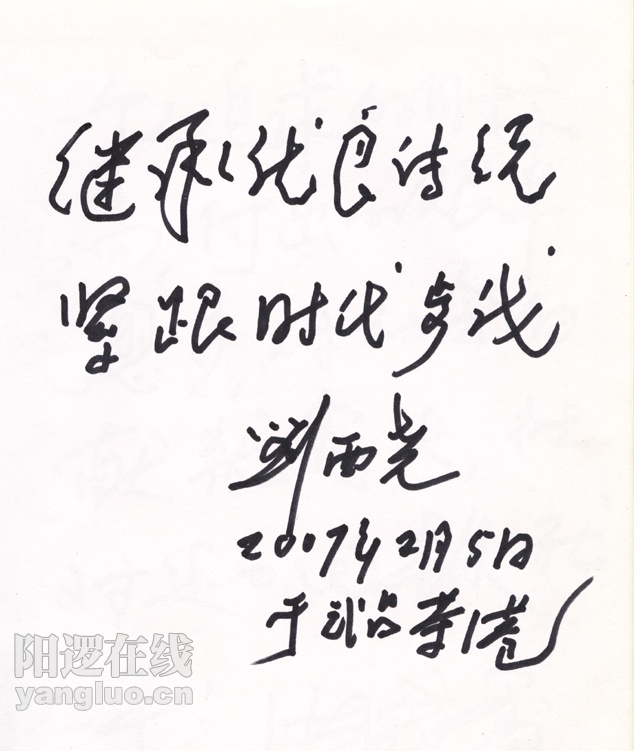 继承优良传统
紧跟时代步伐
刘西尧
2007年2月5日
于武昌茶港
阳逻在线
yangluo.cn